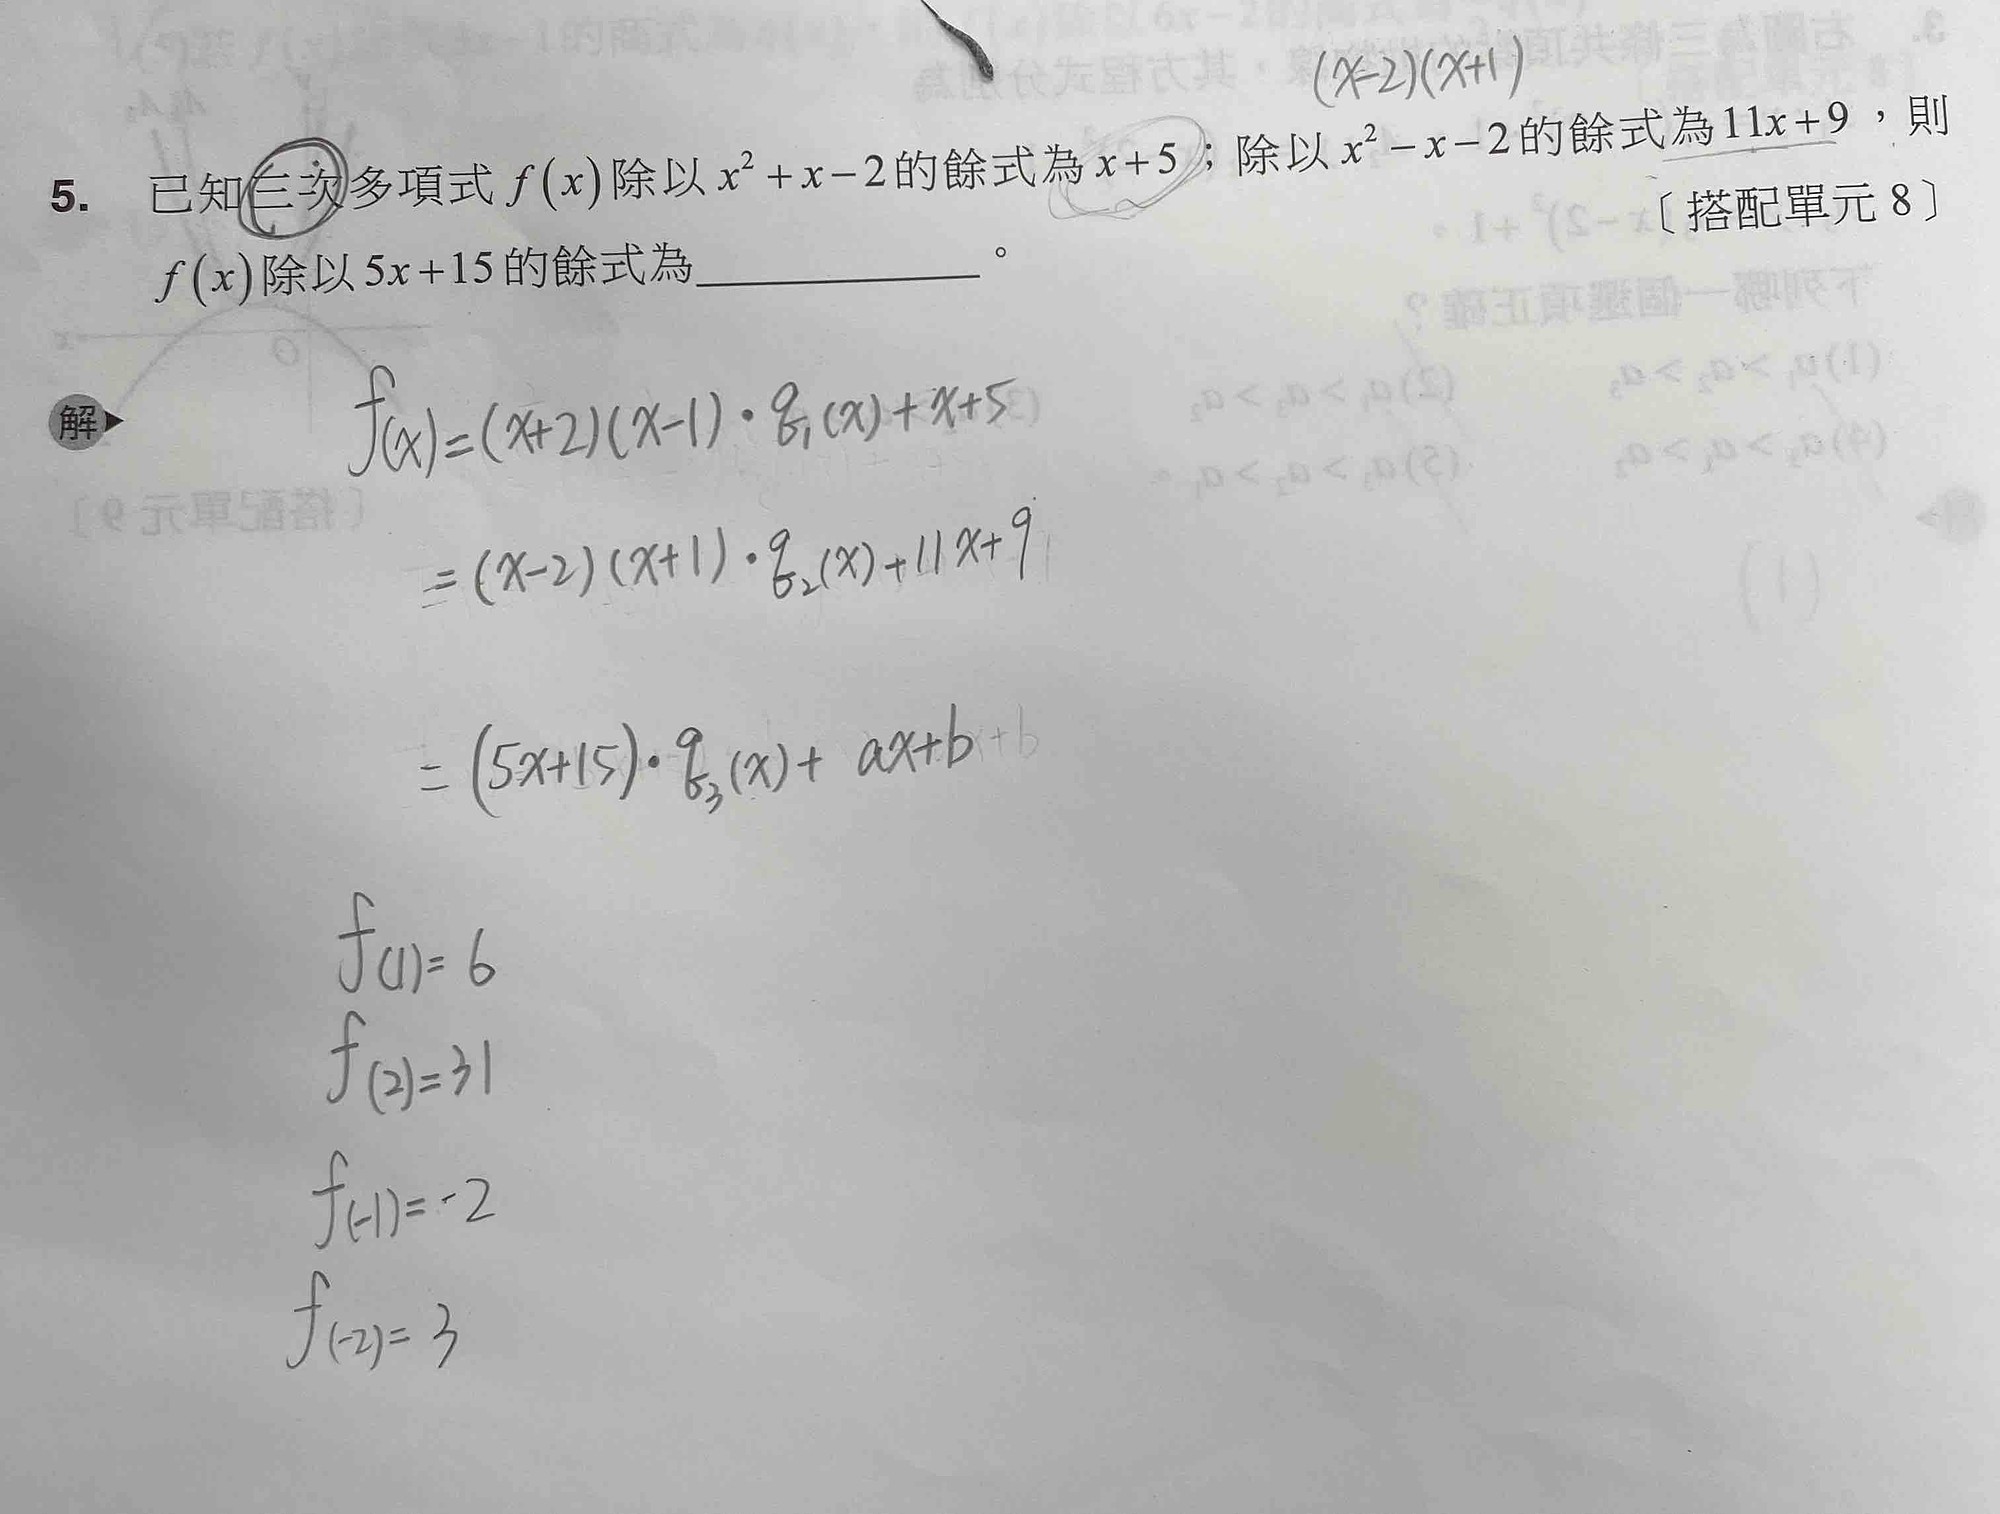 (x-2)(x+1)
5. 已知三次多項式 f(x)除以 x²+x-2的餘式為 x+5；除以 x²-x-2的餘式為11x+9，則
〔搭配單元 8〕
f(x)除以5x+15的餘式為__________。
解
f(x)=(x+2)(x-1)·q₁(x)+x+5
=(x-2)(x+1)·q₂(x)+11x+9
=(5x+15)·q₃(x)+ax+b
f(1)=6
f(2)=31
f(-1)=-2
f(-2)=3